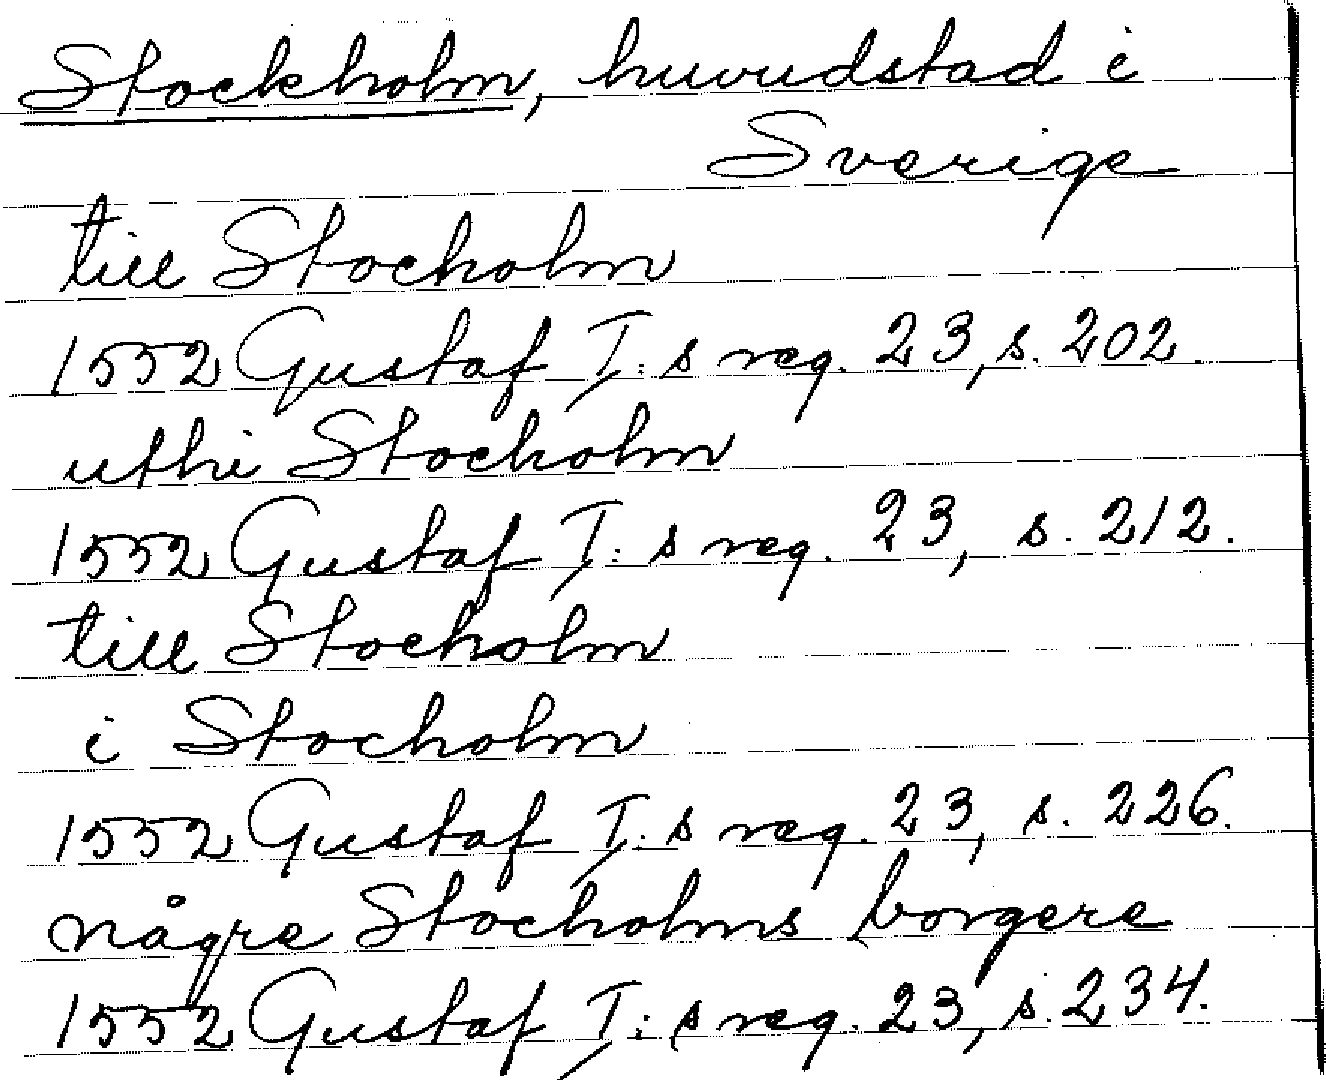 Stockholm, huvudstad i
Sverige
till Stocholm
1552 Gustaf I:s reg. 23, s. 202.
uthi Stocholm
1552 Gustaf I:s reg. 23, s. 212.
till Stocholm
i Stocholm
1552 Gustaf I:s reg. 23, s. 226.
någre Stocholms borgere
1552 Gustaf I:s reg. 23, s. 234.